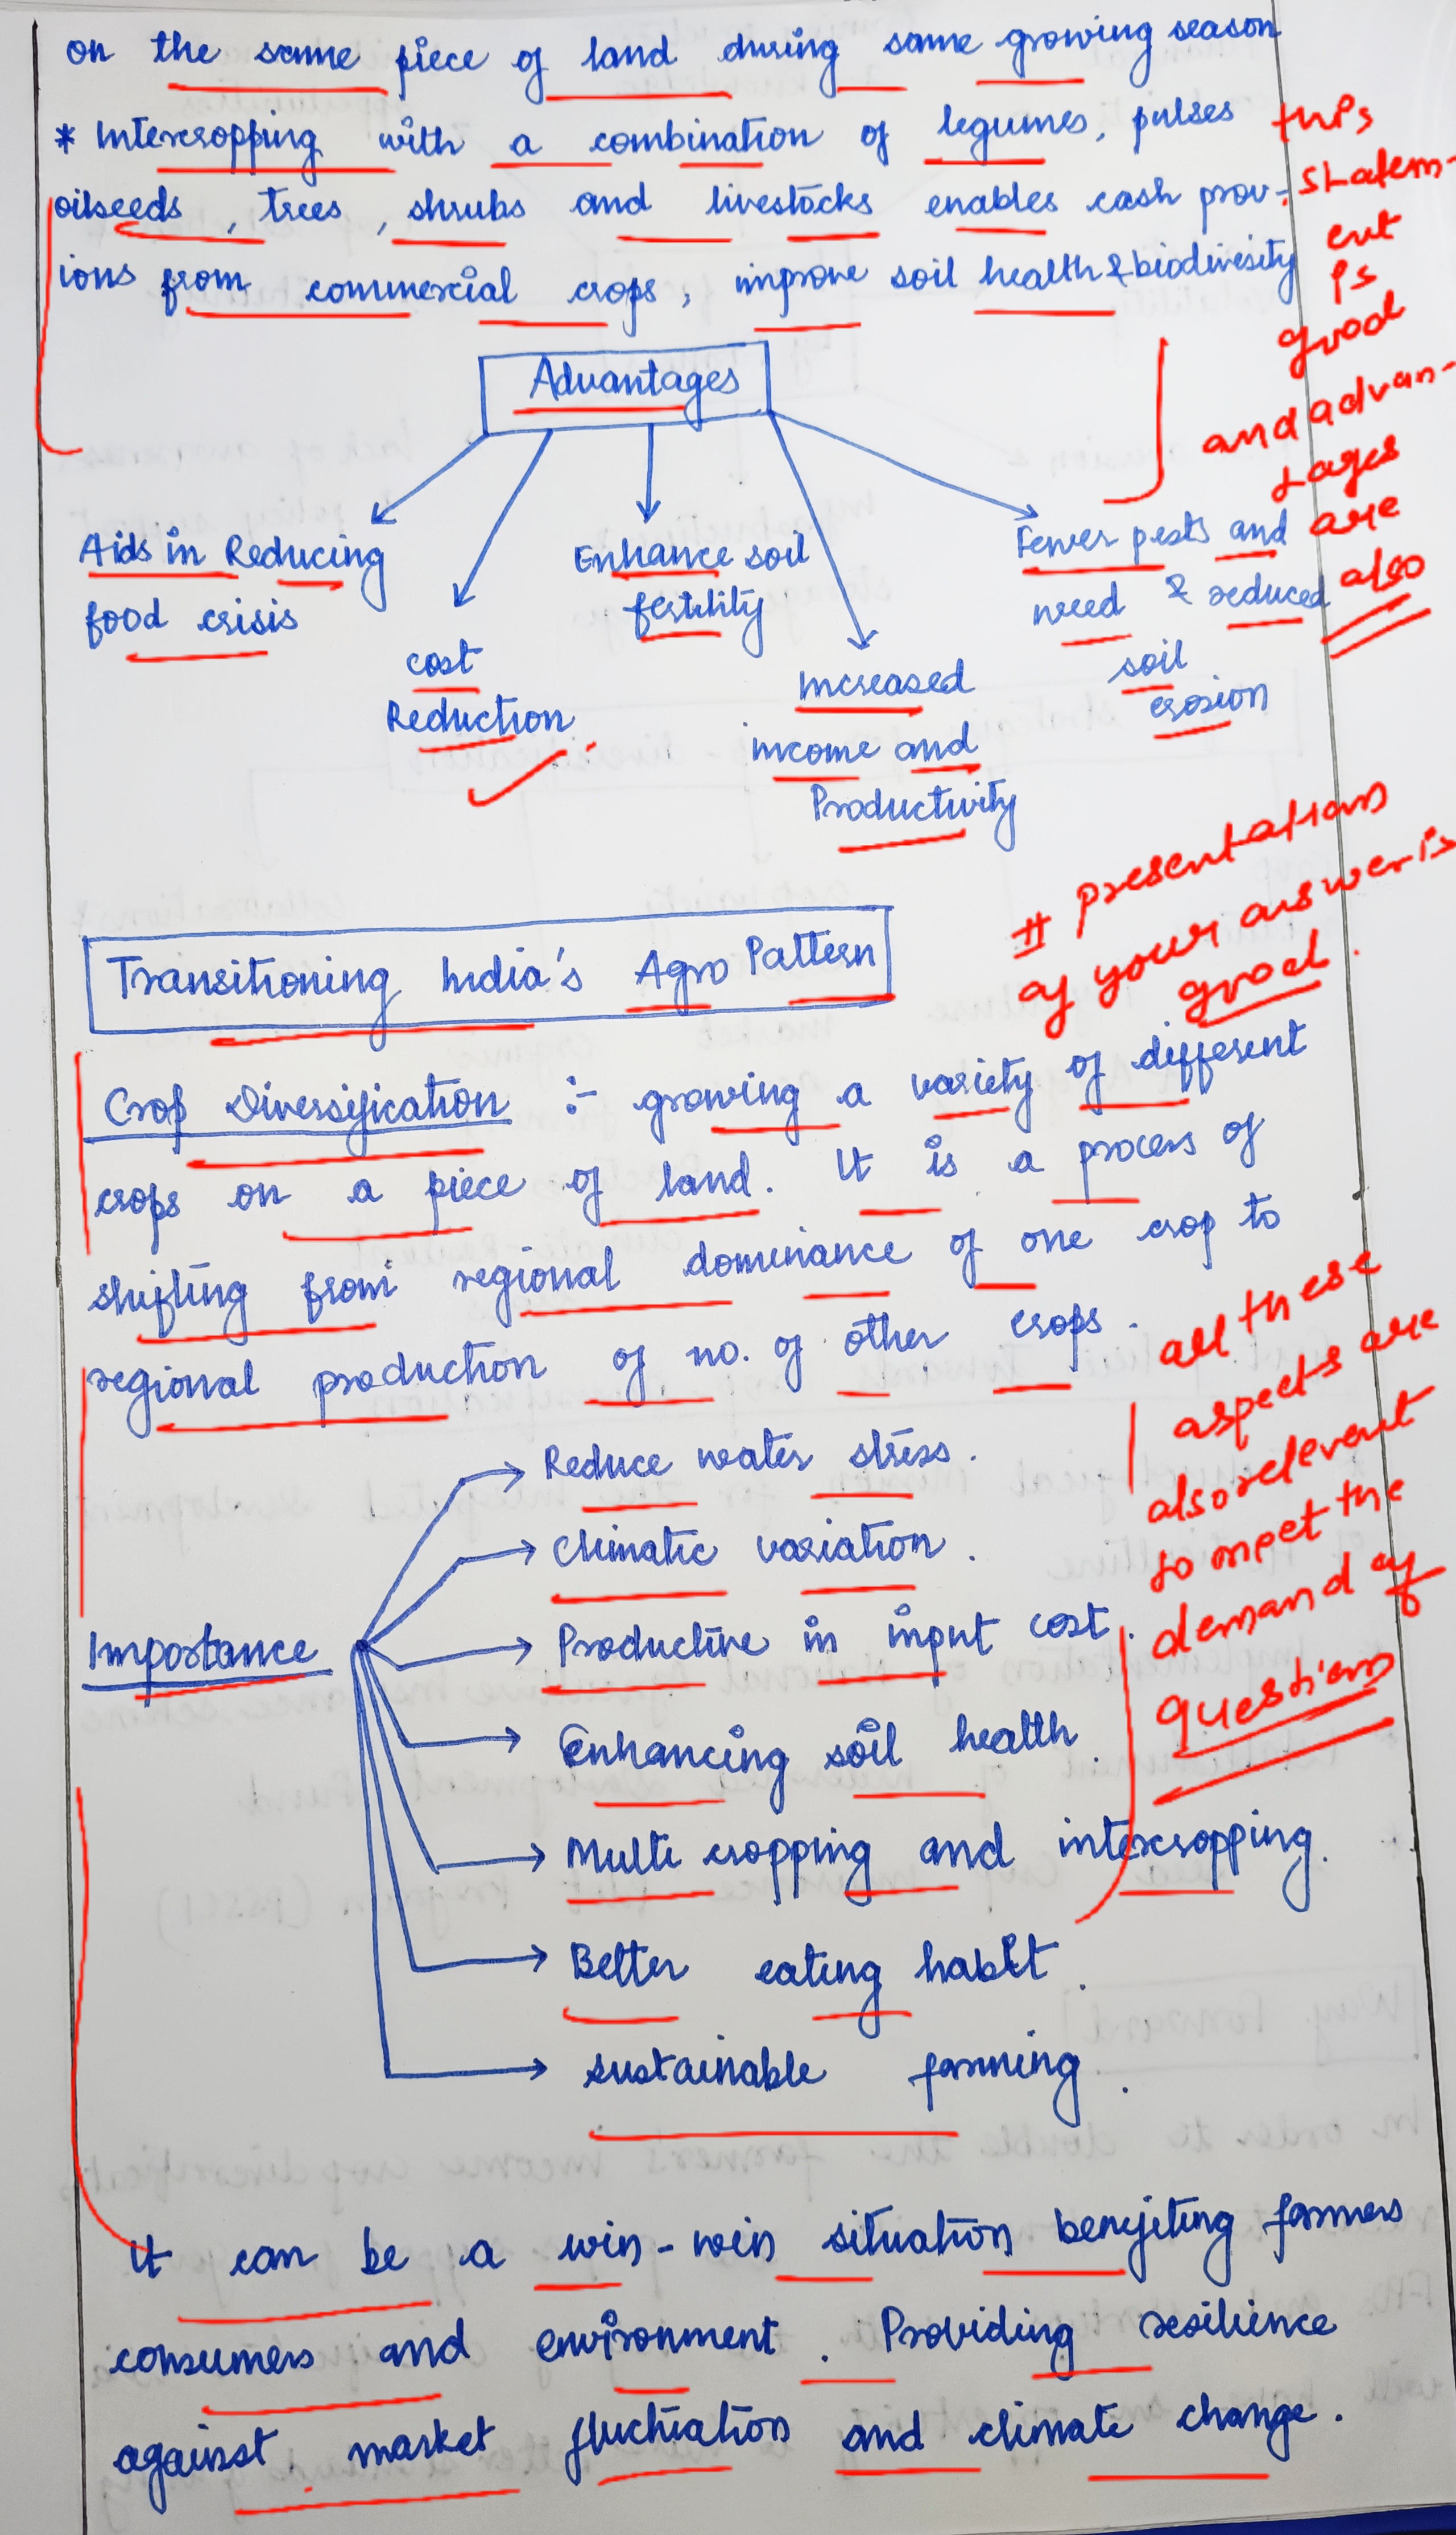 on the same piece of land during same growing season
* Intercropping with a combination of legumes, pulses
oilseeds, trees, shrubs and livestocks enables cash prov-
ions from commercial crops, improve soil health & biodiversity
this
statem-
ent
is
good
and advan-
tages
are
also
Advantages
Aids in Reducing
food crisis
cost
Reduction
Enhance soil
fertility
Increased
income and
Productivity
Fewer pests and
need & reduced
soil
erosion
# presentation
of your answer is
good.
Transitioning India's Agro Pattern
Crop Diversification :- growing a variety of different
crops on a piece of land. It is a process of
shifting from regional dominance of one crop to
regional production of no. of other crops.
all these
aspects are
also relevent
to meet the
demand of
question
Importance
Reduce water stress.
Climatic variation.
Productive in input cost.
Enhancing soil health.
Multi cropping and intercropping.
Better eating habit.
sustainable farming.
It can be a win-win situation benefiting farmers
consumers and environment. Providing resilience
against market fluctuation and climate change.